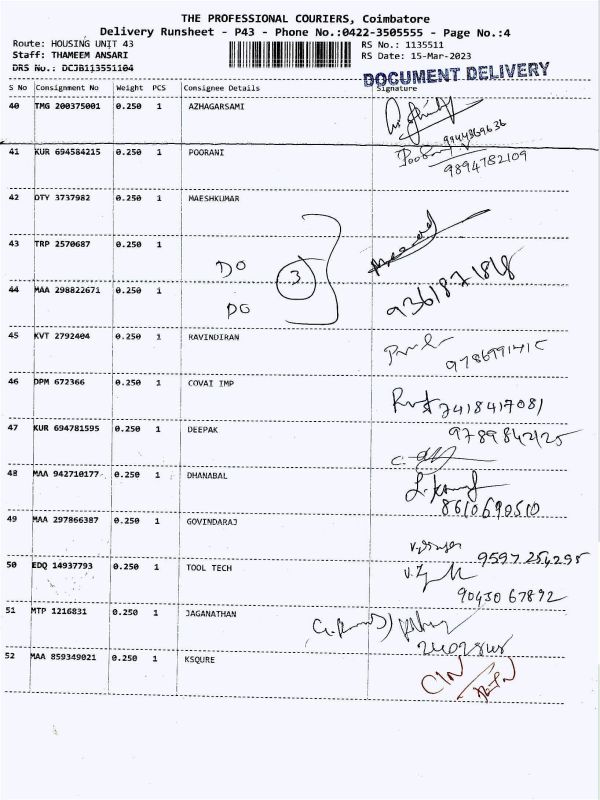 THE PROFESSIONAL COURIERS, Coimbatore
Delivery Runsheet - P43 - Phone No.:0422-3505555 - Page No.:4
Route: HOUSING UNIT 43 RS No.: 1135511
Staff: THAMEEM ANSARI RS Date: 15-Mar-2023
DRS No.: DCJB113551104
DOCUMENT DELIVERY
S No Consignment No Weight PCS Consignee Details Signature
40 TMG 200375001 0.250 1 AZHAGARSAMI
9944369636
41 KUR 694584215 0.250 1 POORANI
9894782109
42 DTY 3737982 0.250 1 MAESHKUMAR
43 TRP 2570687 0.250 1
DO
3
44 MAA 298822671 0.250 1
DO
45 KVT 2792404 0.250 1 RAVINDIRAN
46 DPM 672366 0.250 1 COVAI IMP
7418417081
47 KUR 694781595 0.250 1 DEEPAK
9789842125
48 MAA 942710177 0.250 1 DHANABAL
8610690510
49 MAA 297866387 0.250 1 GOVINDARAJ
9597254295
50 EDQ 14937793 0.250 1 TOOL TECH
9043067892
51 MTP 1216831 0.250 1 JAGANATHAN
52 MAA 859349021 0.250 1 KSQURE